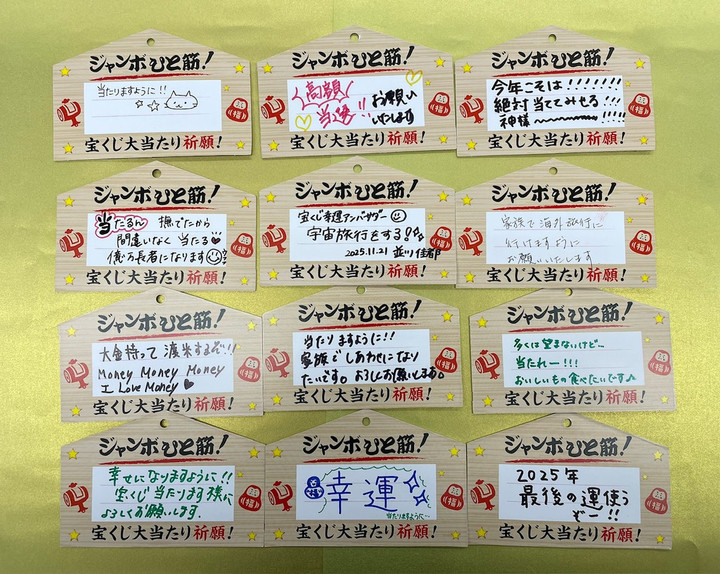 ジャンボひと筋!
当たりますように!!
宝くじ大当たり祈願!
ジャンボひと筋!
高額
当選!!
お願い
いたします
宝くじ大当たり祈願!
ジャンボひと筋!
今年こそは!!!!!!!
絶対当ててみせる!!!
神様〜〜〜!!!!!
宝くじ大当たり祈願!
ジャンボひと筋!
当たるん 撫でたから
間違いなく当たる♥
億万長者になります☺
福
宝くじ大当たり祈願!
ジャンボひと筋!
宝くじ幸運アンバサダー☺
宇宙旅行をする!
2025.11.21 並川佳都
福
宝くじ大当たり祈願!
ジャンボひと筋!
家族で海外旅行に
行けますように
お願いいたします
福
宝くじ大当たり祈願!
ジャンボひと筋!
大金持って渡米するぞ!!
Money Money Money
I Love Money ♥
福
宝くじ大当たり祈願!
ジャンボひと筋!
当たりますように!!
家族でしあわせになり
たいです。よろしくお願いします。
福
宝くじ大当たり祈願!
ジャンボひと筋!
多くは望まないけど…
当たれー!!!
おいしいもの食べたいです♪
福
宝くじ大当たり祈願!
ジャンボひと筋!
幸せになりますように!!
宝くじ当たります様に
よろしくお願いします.
福
宝くじ大当たり祈願!
ジャンボひと筋!
幸運
当たりますように…
福
宝くじ大当たり祈願!
ジャンボひと筋!
2025年
最後の運使う
ぞー!!
福
宝くじ大当たり祈願!